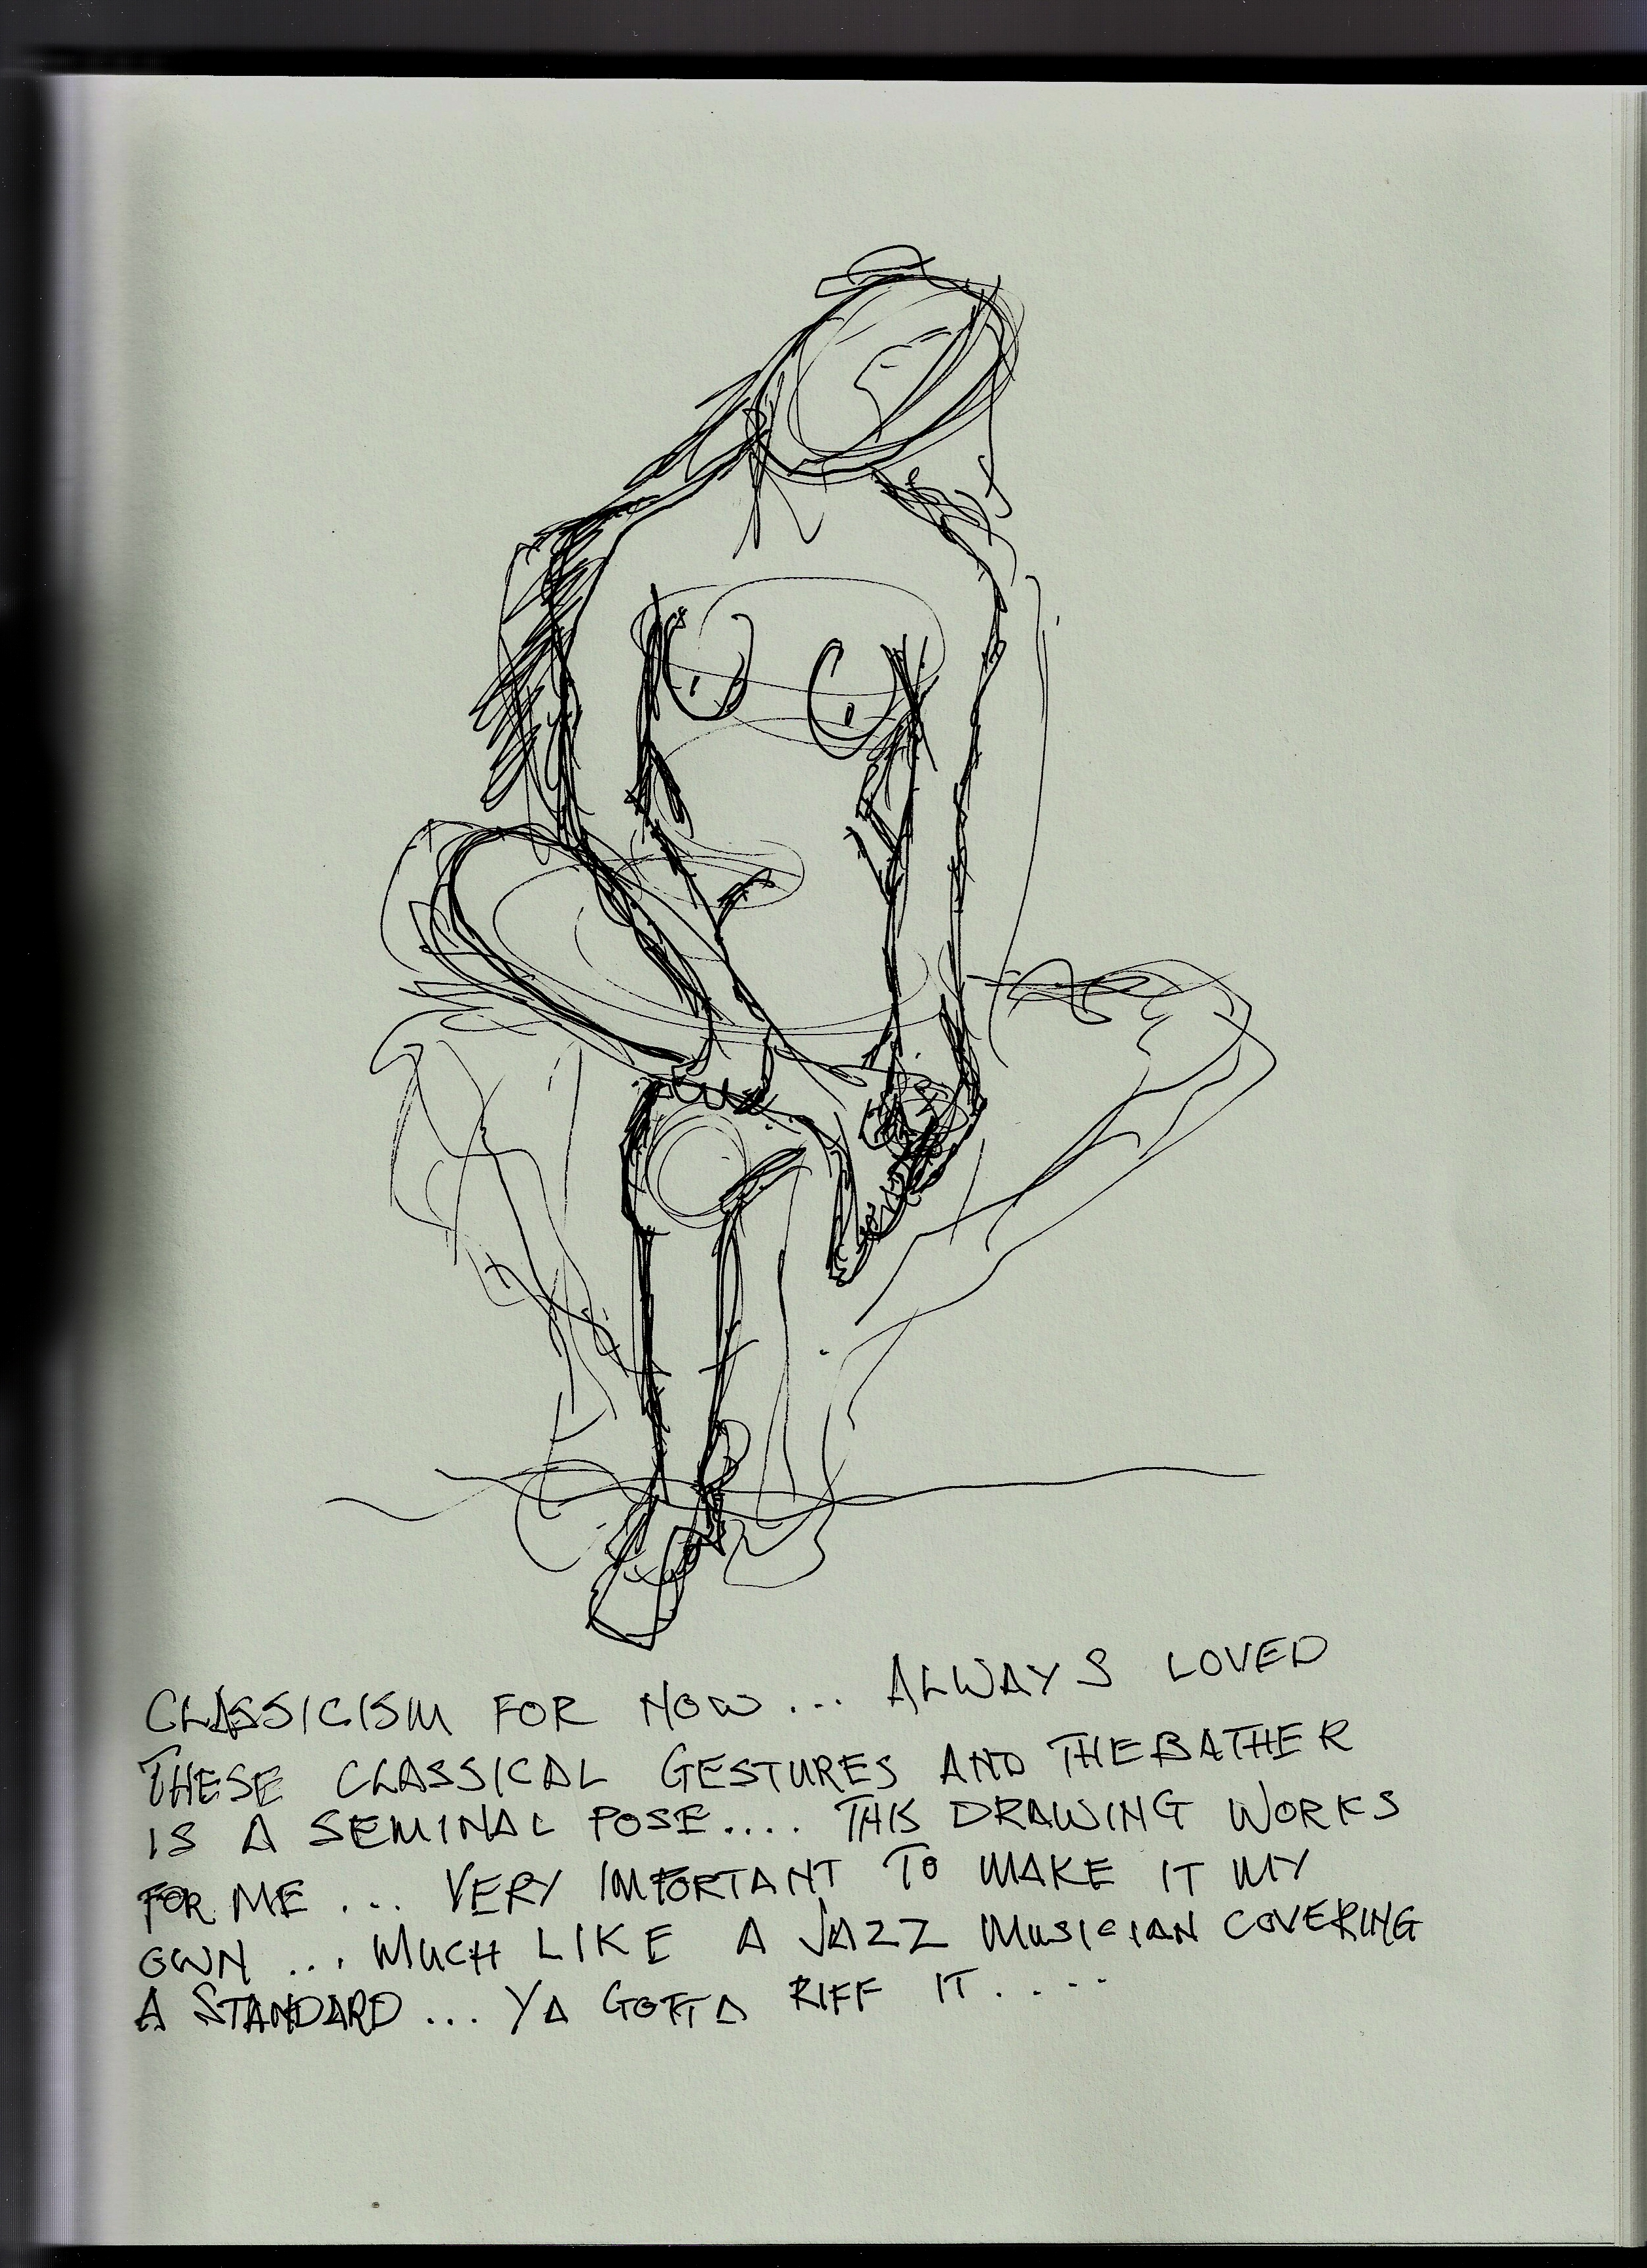 CLASSICISM FOR NOW... ALWAYS LOVED
THESE CLASSICAL GESTURES AND THE BATHER
IS A SEMINAL POSE.... THIS DRAWING WORKS
FOR ME ... VERY IMPORTANT TO MAKE IT MY
OWN ... MUCH LIKE A JAZZ MUSICIAN COVERING
A STANDARD... YA GOTTA RIFF IT....